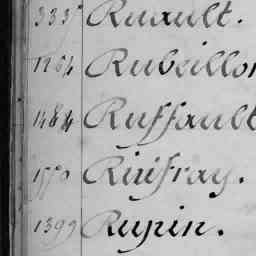 335 Ruault.
1264 Rubeillon
1484 Ruffault
1550 Ruifray.
1399 Rupin.